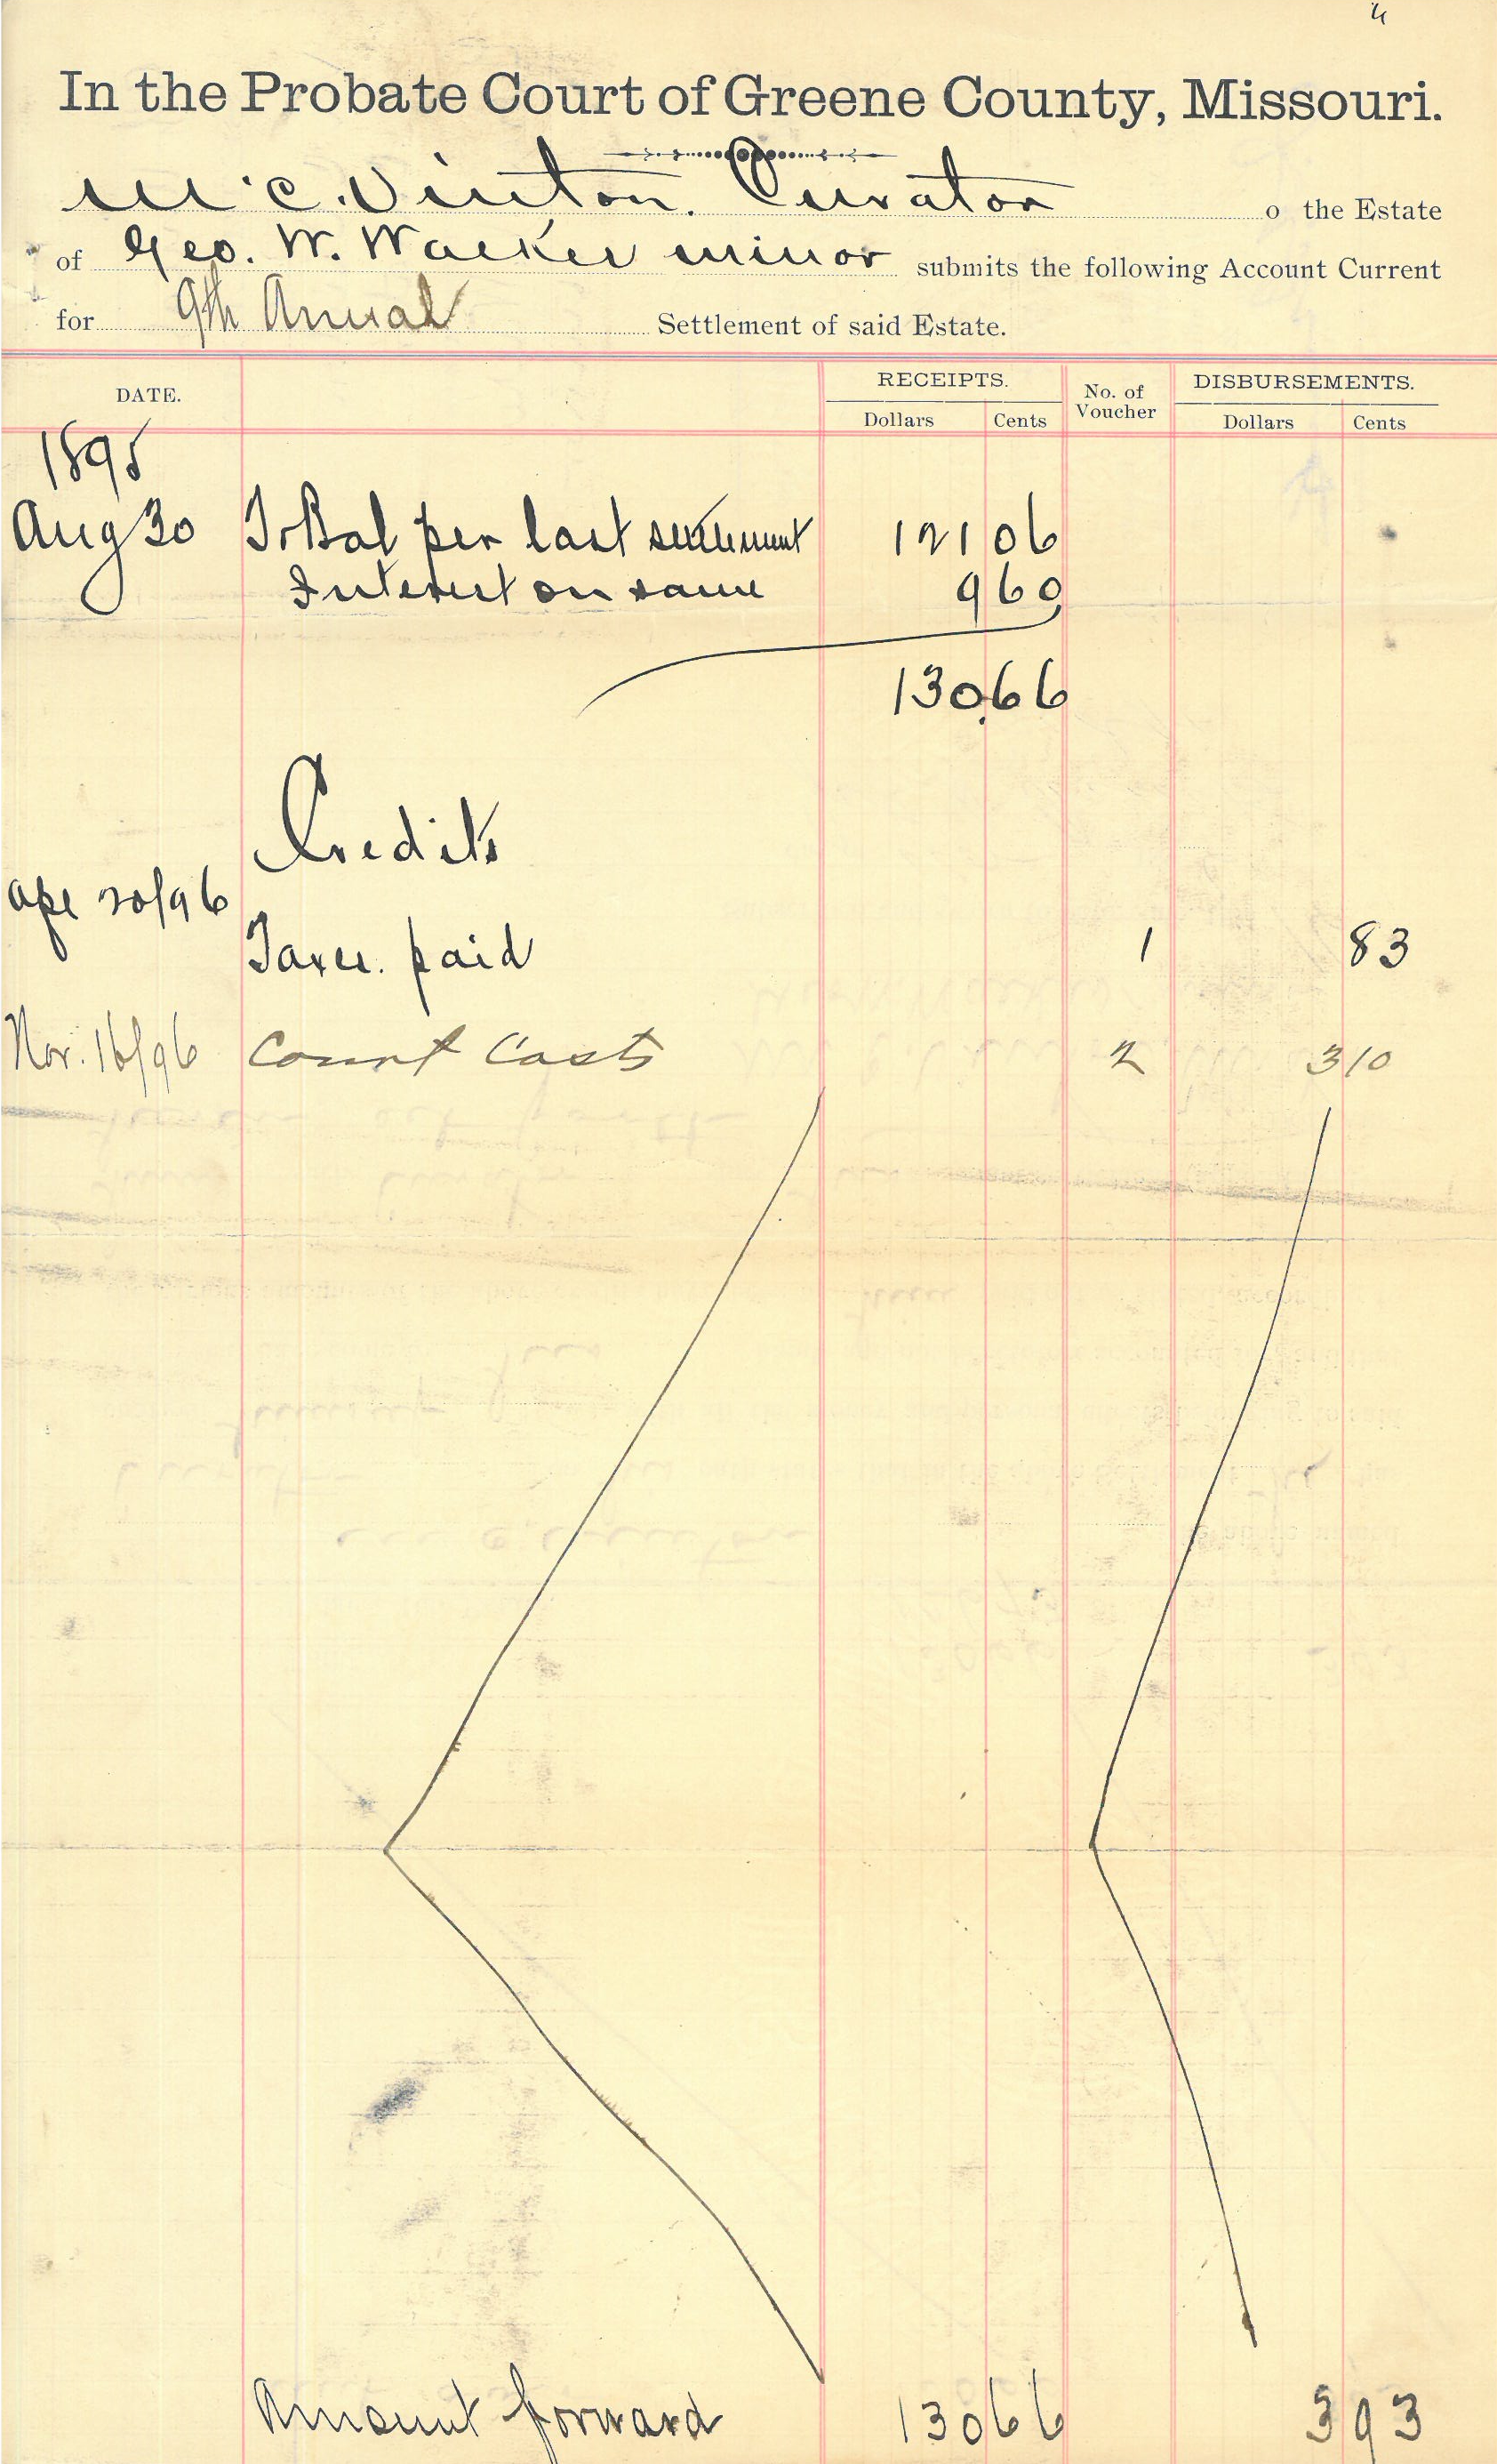 4
In the Probate Court of Greene County, Missouri.
M. C. Vinton. Curator o the Estate
of Geo. W. Wacker minor submits the following Account Current
for 9th Anual Settlement of said Estate.
DATE. RECEIPTS. No. of Voucher DISBURSEMENTS.
Dollars Cents Dollars Cents
1895
Aug 30 To Bal per last settlement 121 06
Interest on same 9 60
130 66
Credits
Ape 20/96
Taxes. paid 1 83
Nov. 16/96 Court Costs 2 3 10
Amount forward 130 66 3 93